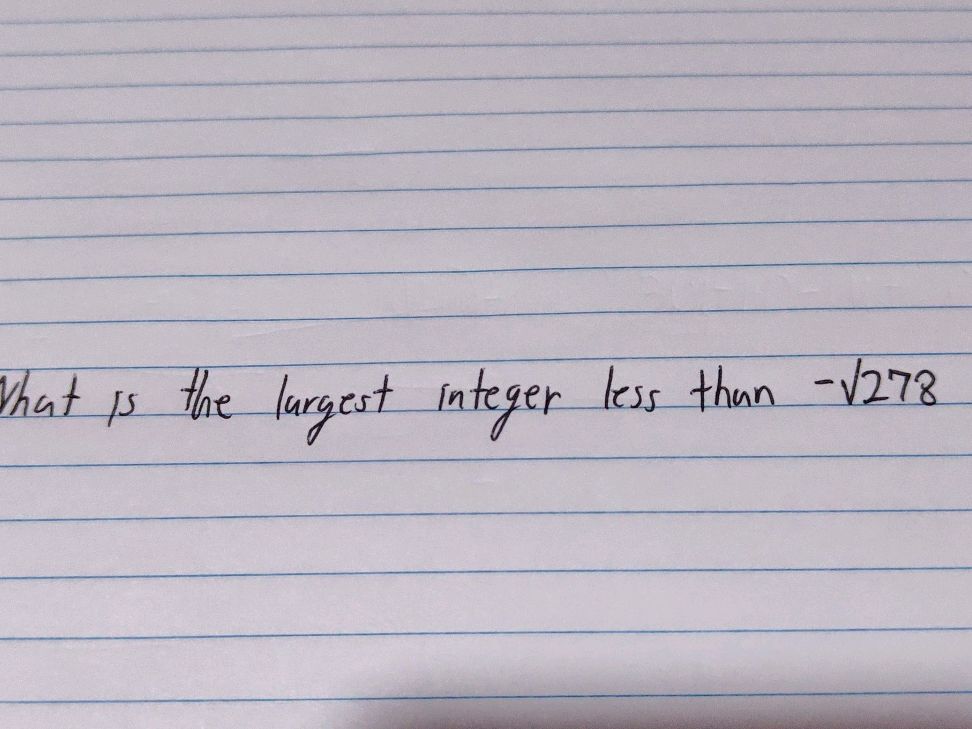 What is the largest integer less than -√278